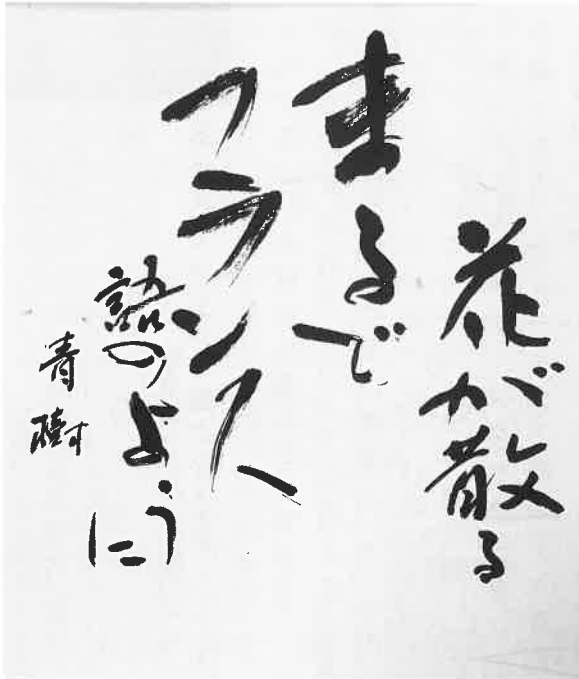 花が散る
まるで
フランス
語のように
青樹